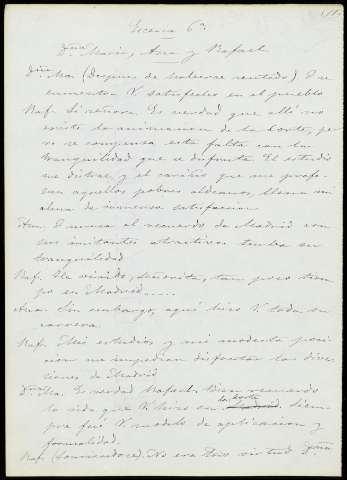 Escena 6ª
Dña María, Ana y Rafael
Dña Ma. (Despues de haberse sentado) ¿Se
encuentra V. satisfecho en el pueblo
Raf. Si señora. Es verdad que allí no
existe la animacion de la Corte, pe
ro se compensa esta falta con la
tranquilidad que se disfruta. El estudio
me distrae, y el cariño que me profe-
san aquellos pobres aldeanos, llena mi
alma de inmensa satisfaccion
Ana. ¿Y nunca el recuerdo de Madrid con
sus incitantes atractivos turba su
tranquilidad
Raf. He vivido, señorita, tan poco tiem
po en Madrid.....
Ana. Sin embargo, aquí hizo V. toda su
carrera.
Raf. Mis estudios y mi modesta posi
cion me impedian disfrutar las diver
siones de Madrid
Dña Ma. Es verdad Rafael. Bien recuerdo
la vida que V. hizo en la Corte Madrid. Siem
pre fué V. modelo de aplicacion y
formalidad.
Raf. (Sonriendose). No era eso virtud Dña